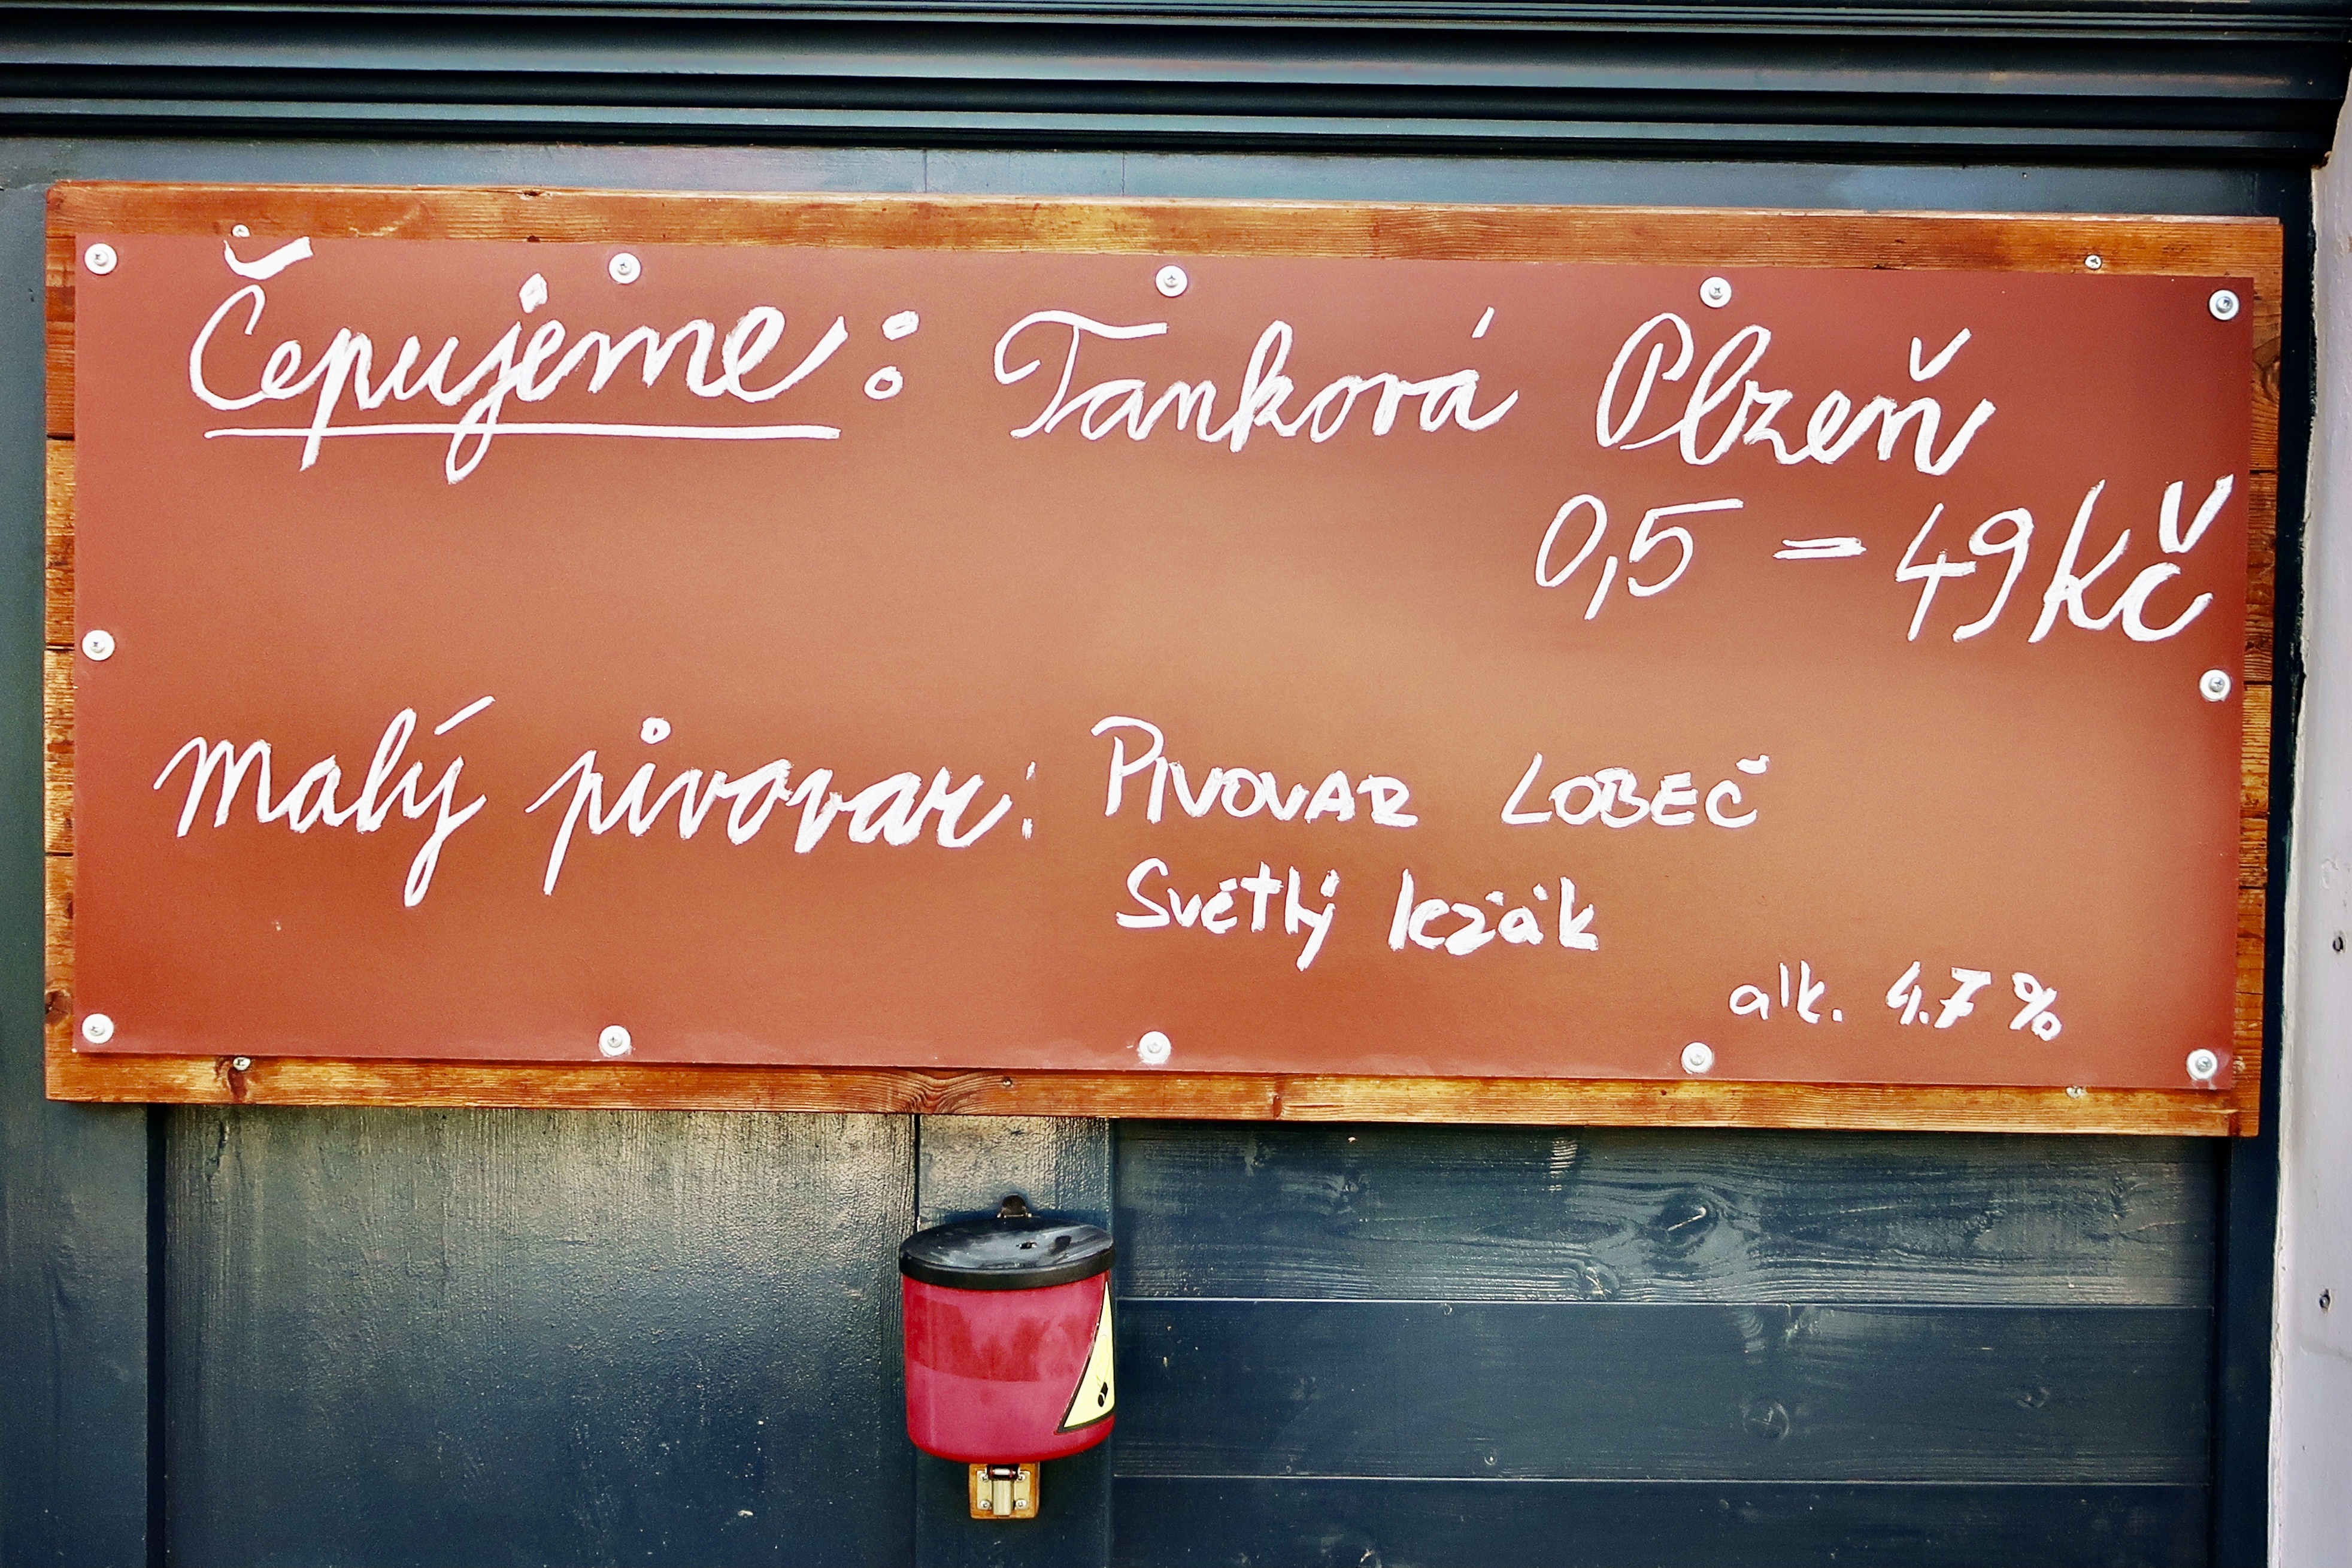 Čepujeme: Tanková Plzeň
0,5 = 49 Kč
Malý pivovar: PIVOVAR LOBEČ
Světlý ležák
alk. 4.7 %